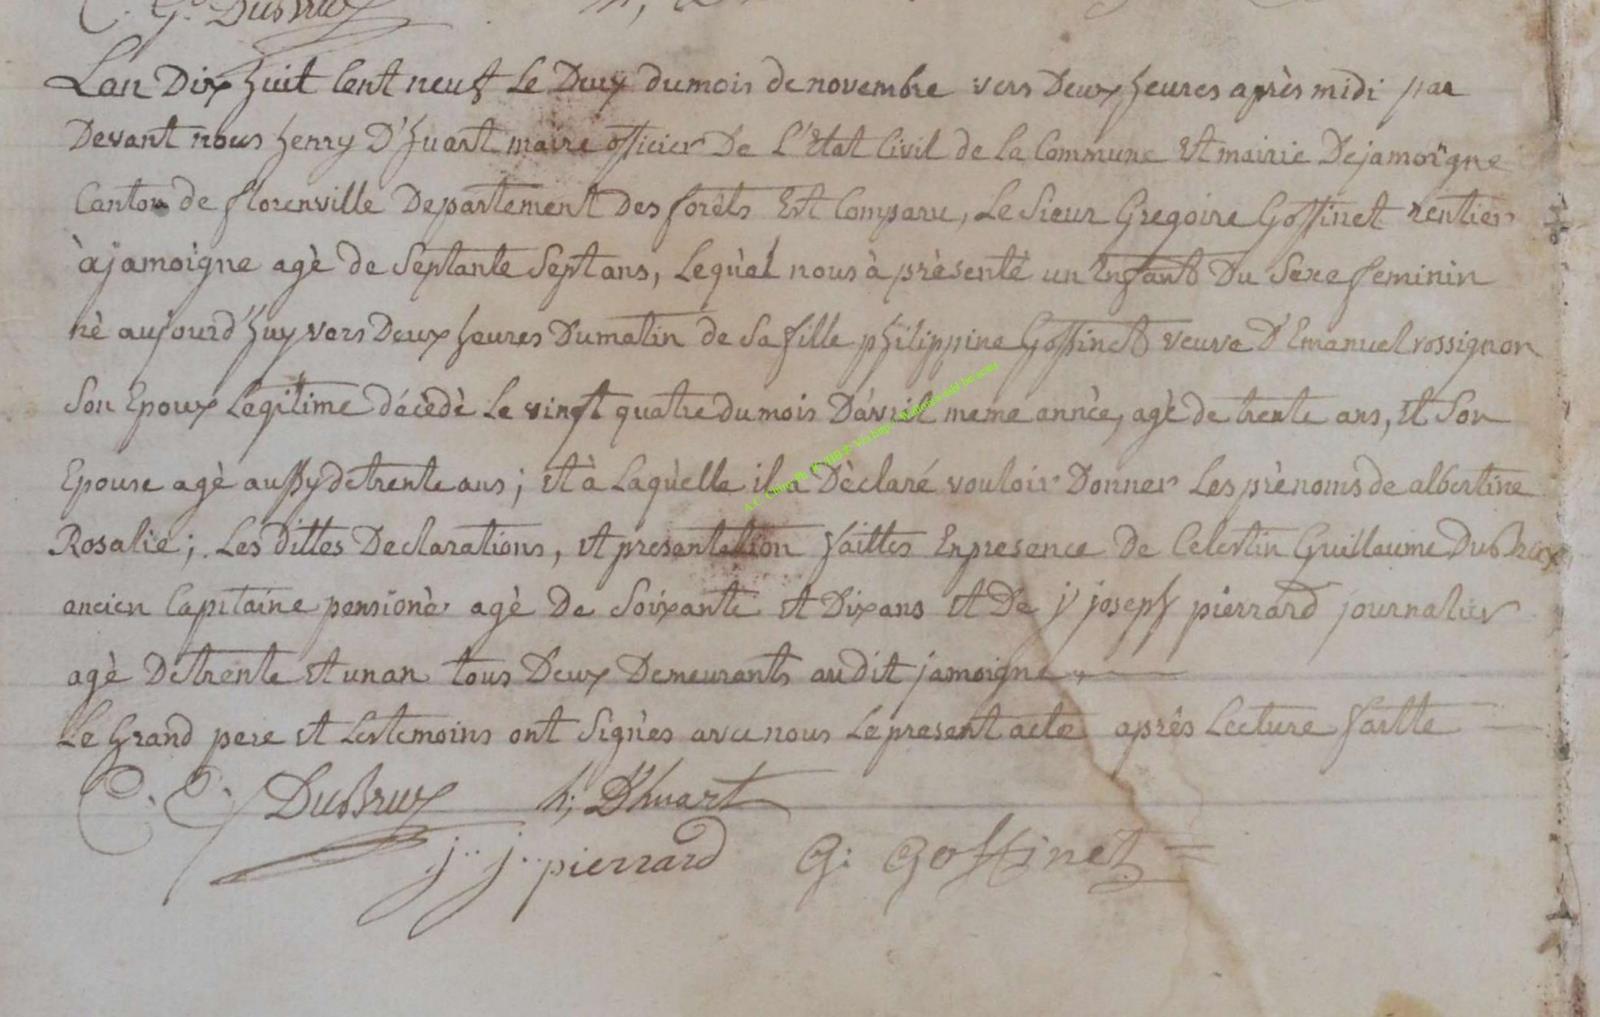 C. G. DuBrux
h; D
L'an Dix huit Cent neuf Le Deux du mois de novembre vers Deux heures après midi par
Devant nous henry D'huart maire officier De L'Etat Civil de la Commune Et mairie De jamoïgne
Canton de florenville Departement Des forêts Est Comparu, Le Sieur Gregoire Goffinet rentier
à jamoigne agè de Septante Sept ans, Lequèl nous à prèsenté un Enfant Du Sexe feminin
nè aujourd'huy vers Deux heures Du matin de Sa fille philippine Goffinet veuve D'Emanuel rossignon
Son Epoux Legitime décèdè Le vingt quatre du mois D'avril meme annèe, agè de trente ans, Et Son
Epouse agè aussy de trente ans; Et à Laquèlle il a Dèclaré vouloir Donner Les prènoms de albertine
Rosalie; Les dittes Declarations, Et presentation faittes En presence de Celestin Guillaume DuBrux
ancien Capitaine pensionè agè De Soixante Et Dix ans Et De j joseph pierrard journalier
agè De trente Et un an tous Deux Demeurants au dit jamoigne
Le Grand pere Et Les temoins ont Signès avec nous Le present acte après Lecture faitte
C. G. DuBrux h; D'huart
j.. j.. pierrard G: Goffinet